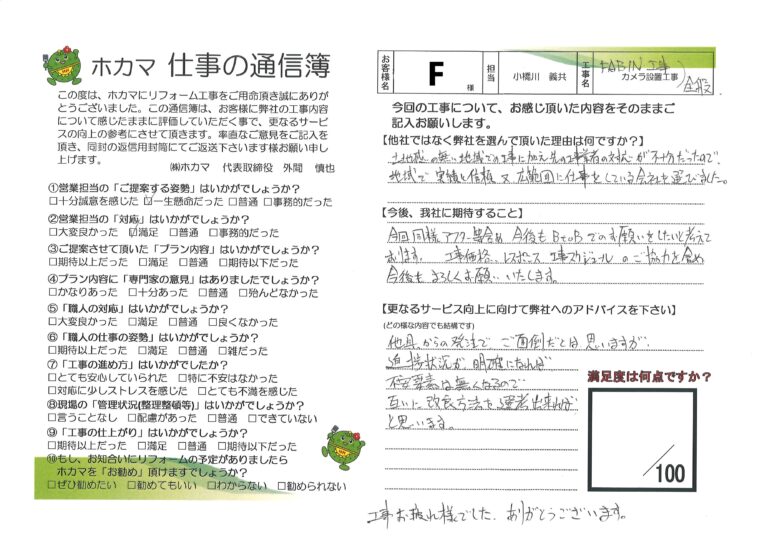 ホカマ 仕事の通信簿
この度は、ホカマにリフォーム工事をご用命頂き誠にありが
とうございました。この通信簿は、お客様に弊社の工事内容
について感じたままに評価していただく事で、更なるサービ
スの向上の参考にさせて頂きます。率直なご意見をご記入を
頂き、同封の返信用封筒にてご返送下さいます様お願い申し
上げます。
㈱ホカマ 代表取締役 外間 慎也
①営業担当の「ご提案する姿勢」はいかがでしょうか?
□十分誠意を感じた ☑一生懸命だった □普通 □事務的だった
②営業担当の「対応」はいかがでしょうか?
□大変良かった ☑満足 □普通 □事務的だった
③ご提案させて頂いた「プラン内容」はいかがですか?
□期待以上だった □満足 □普通 □期待以下だった
④プラン内容に「専門家の意見」はありましたでしょうか?
□かなりあった □十分あった □普通 □殆んどなかった
⑤「職人の対応」はいかがでしょうか?
□大変良かった □満足 □普通 □良くなかった
⑥「職人の仕事の姿勢」はいかがでしょうか?
□期待以上だった □満足 □普通 □雑だった
⑦「工事の進め方」はいかがでしたか?
□とても安心していられた □特に不安はなかった
□対応に少しストレスを感じた □とても不満を感じた
⑧現場の「管理状況(整理整頓等)」はいかがでしょうか?
□言うことなし □配慮があった □普通 □できていない
⑨「工事の仕上がり」はいかがでしょうか?
□期待以上だった □満足 □普通 □期待以下だった
⑩もし、お知合いにリフォームの予定がありましたら
ホカマを「お勧め」頂けますでしょうか?
□ぜひ勧めたい □勧めてもいい □わからない □勧められない
お客様名 F 様 担当 小橋川 義共 工事名 FABIN工事
カメラ設置工事 全般
今回の工事について、お感じ頂いた内容をそのままご
記入お願いします。
【他社ではなく弊社を選んで頂いた理由は何ですか?】
土地感の無い地域での工事に加え、先の工事業者の対応が不十分だったので、
地域で実績と信頼、又広範囲に仕事をしている会社を選びました。
【今後、我社に期待すること】
今回同様アフター含め今後もBtoBでのお願いをしたいと考えて
おります。 工事価格、レスポンス、工事スケジュールのご協力を含め
今後もよろしくお願いいたします。
【更なるサービス向上に向けて弊社へのアドバイスを下さい】
(どの様な内容でも結構です)
他県からの発注で、ご面倒だとは思いますが、
進捗状況が明確になれば
は無くなるので
互いに改良方法を 出来れば
と思います。
満足度は何点ですか?
/100
工事お疲れ様でした。ありがとうございます。